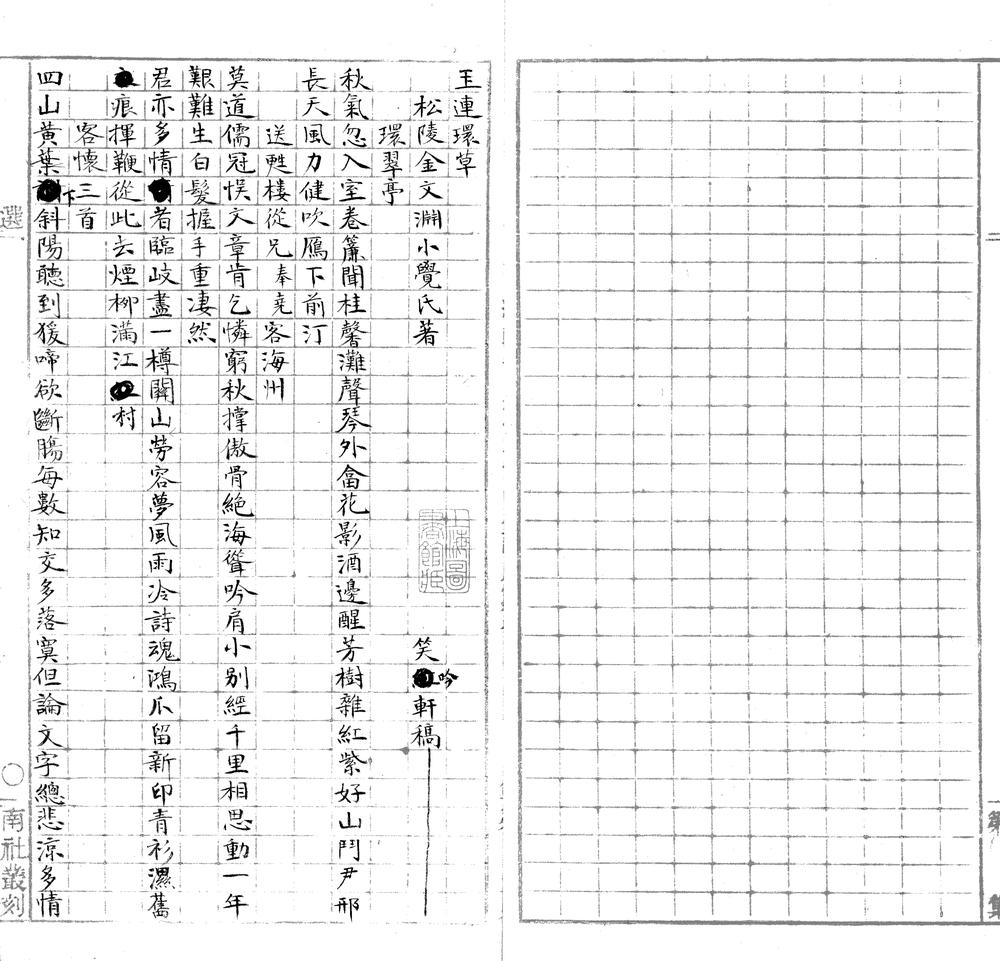 第 集
玉連環草
松陵金文淵小覺氏著 笑吟軒稿
環翠亭
秋氣忽入室卷簾聞桂馨灘聲琴外畣花影酒邊醒芳樹雜紅紫好山鬥尹邢
長天風力健吹鴈下前汀
送甦樓從兄奉堯客海州
莫道儒冠悞文章肯乞憐窮秋撐傲骨絕海聳吟肩小别經千里相思動一年
艱難生白髮握手重凄然
君亦多情者臨岐盡一樽關山勞客夢風雨冷詩魂鴻爪留新印青衫濕舊
痕揮鞭從此去煙柳滿江村
客懷三首
四山黃葉下斜陽聽到猨啼欲斷腸每數知交多落寞但論文字總悲涼多情
選 〇 南社叢刻
上海圖書館藏